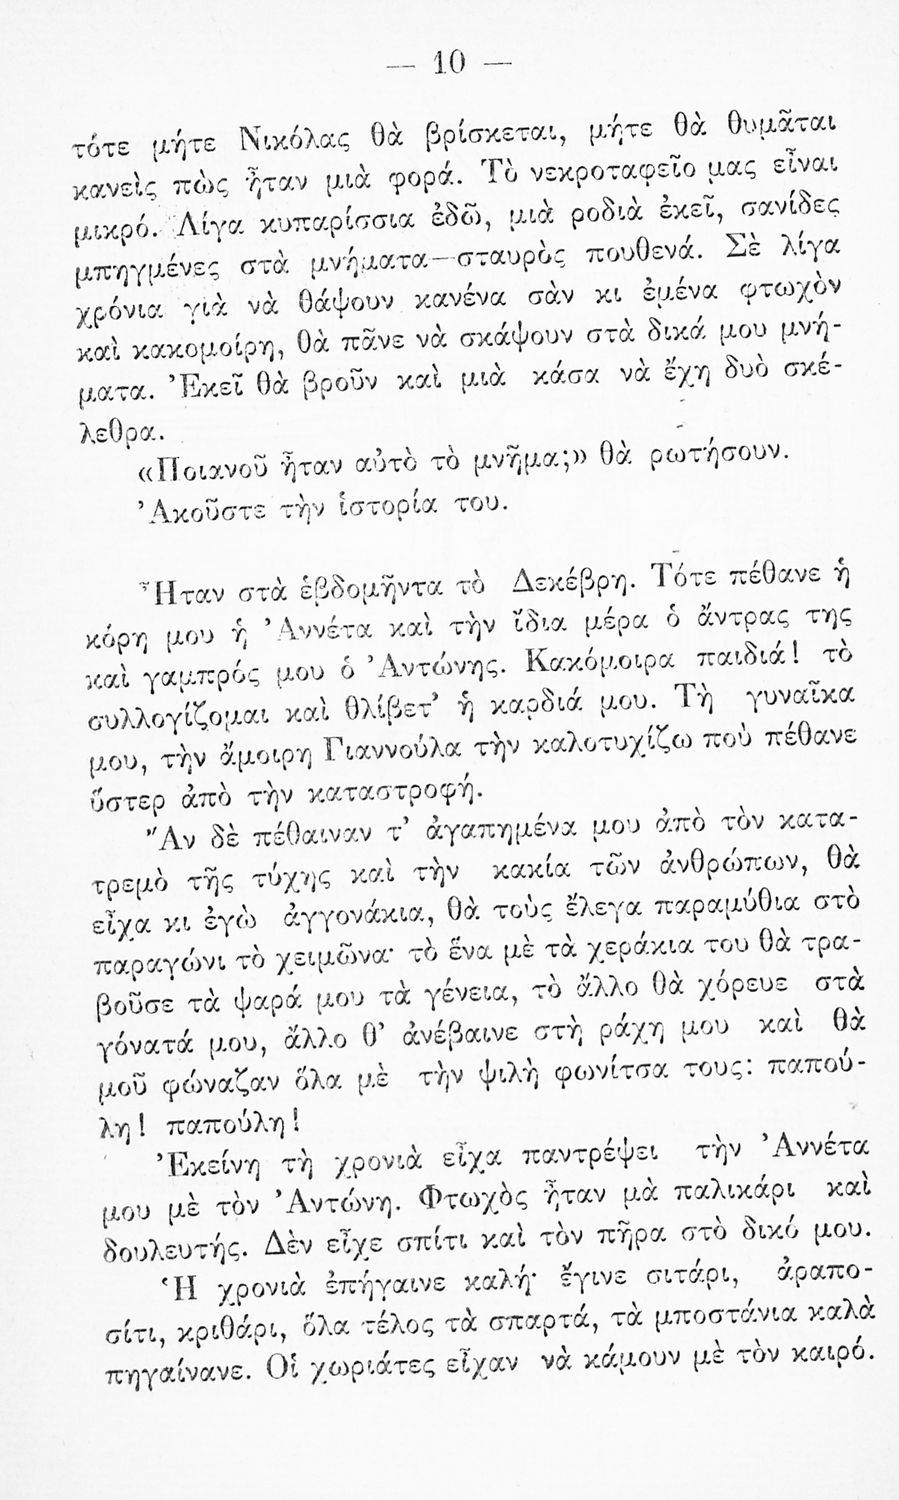 — 10 —
τότε μήτε Νικόλας θὰ βρίσκεται, μήτε θὰ θυμᾶται
κανεὶς πὼς ἦταν μιὰ φορά. Τὸ νεκροταφεῖο μας εἶναι
μικρό. Λίγα κυπαρίσσια ἐδῶ, μιὰ ροδιὰ ἐκεῖ, σανίδες
μπηγμένες στὰ μνήματα—σταυρὸς πουθενά. Σὲ λίγα
χρόνια γιὰ νὰ θάψουν κανένα σὰν κι ἐμένα φτωχὸν
καὶ κακομοίρη, θὰ πᾶνε νὰ σκάψουν στὰ δικά μου μνή-
ματα. Ἐκεῖ θὰ βροῦν καὶ μιὰ κάσα νὰ ἔχη δυὸ σκέ-
λεθρα.
«Ποιανοῦ ἦταν αὐτὸ τὸ μνῆμα;» θὰ ρωτήσουν.
Ἀκοῦστε τὴν ἱστορία του.
Ἦταν στὰ ἑβδομῆντα τὸ Δεκέβρη. Τότε πέθανε ἡ
κόρη μου ἡ Ἀννέτα καὶ τὴν ἴδια μέρα ὁ ἄντρας της
καὶ γαμπρός μου ὁ Ἀντώνης. Κακόμοιρα παιδιά! τὸ
συλλογίζομαι καὶ θλίβετ' ἡ καρδιά μου. Τὴ γυναῖκα
μου, τὴν ἄμοιρη Γιαννούλα τὴν καλοτυχίζω ποὺ πέθανε
ὕστερ ἀπὸ τὴν καταστροφή.
Ἂν δὲ πέθαιναν τ' ἀγαπημένα μου ἀπὸ τὸν κατα-
τρεμὸ τῆς τύχης καὶ τὴν κακία τῶν ἀνθρώπων, θὰ
εἶχα κι ἐγὼ ἀγγονάκια, θὰ τοὺς ἔλεγα παραμύθια στὸ
παραγώνι τὸ χειμῶνα· τὸ ἕνα μὲ τὰ χεράκια του θὰ τρα-
βοῦσε τὰ ψαρά μου τὰ γένεια, τὸ ἄλλο θὰ χόρευε στὰ
γόνατά μου, ἄλλο θ' ἀνέβαινε στὴ ράχη μου καὶ θὰ
μοῦ φώναζαν ὅλα μὲ τὴν ψιλὴ φωνίτσα τους: παπού-
λη! παπούλη!
Ἐκείνη τὴ χρονιὰ εἶχα παντρέψει τὴν Ἀννέτα
μου μὲ τὸν Ἀντώνη. Φτωχὸς ἦταν μὰ παλικάρι καὶ
δουλευτής. Δὲν εἶχε σπίτι καὶ τὸν πῆρα στὸ δικό μου.
Ἡ χρονιὰ ἐπήγαινε καλή· ἔγινε σιτάρι, ἀραπο-
σίτι, κριθάρι, ὅλα τέλος τὰ σπαρτά, τὰ μποστάνια καλὰ
πηγαίνανε. Οἱ χωριάτες εἶχαν νὰ κάμουν μὲ τὸν καιρό.